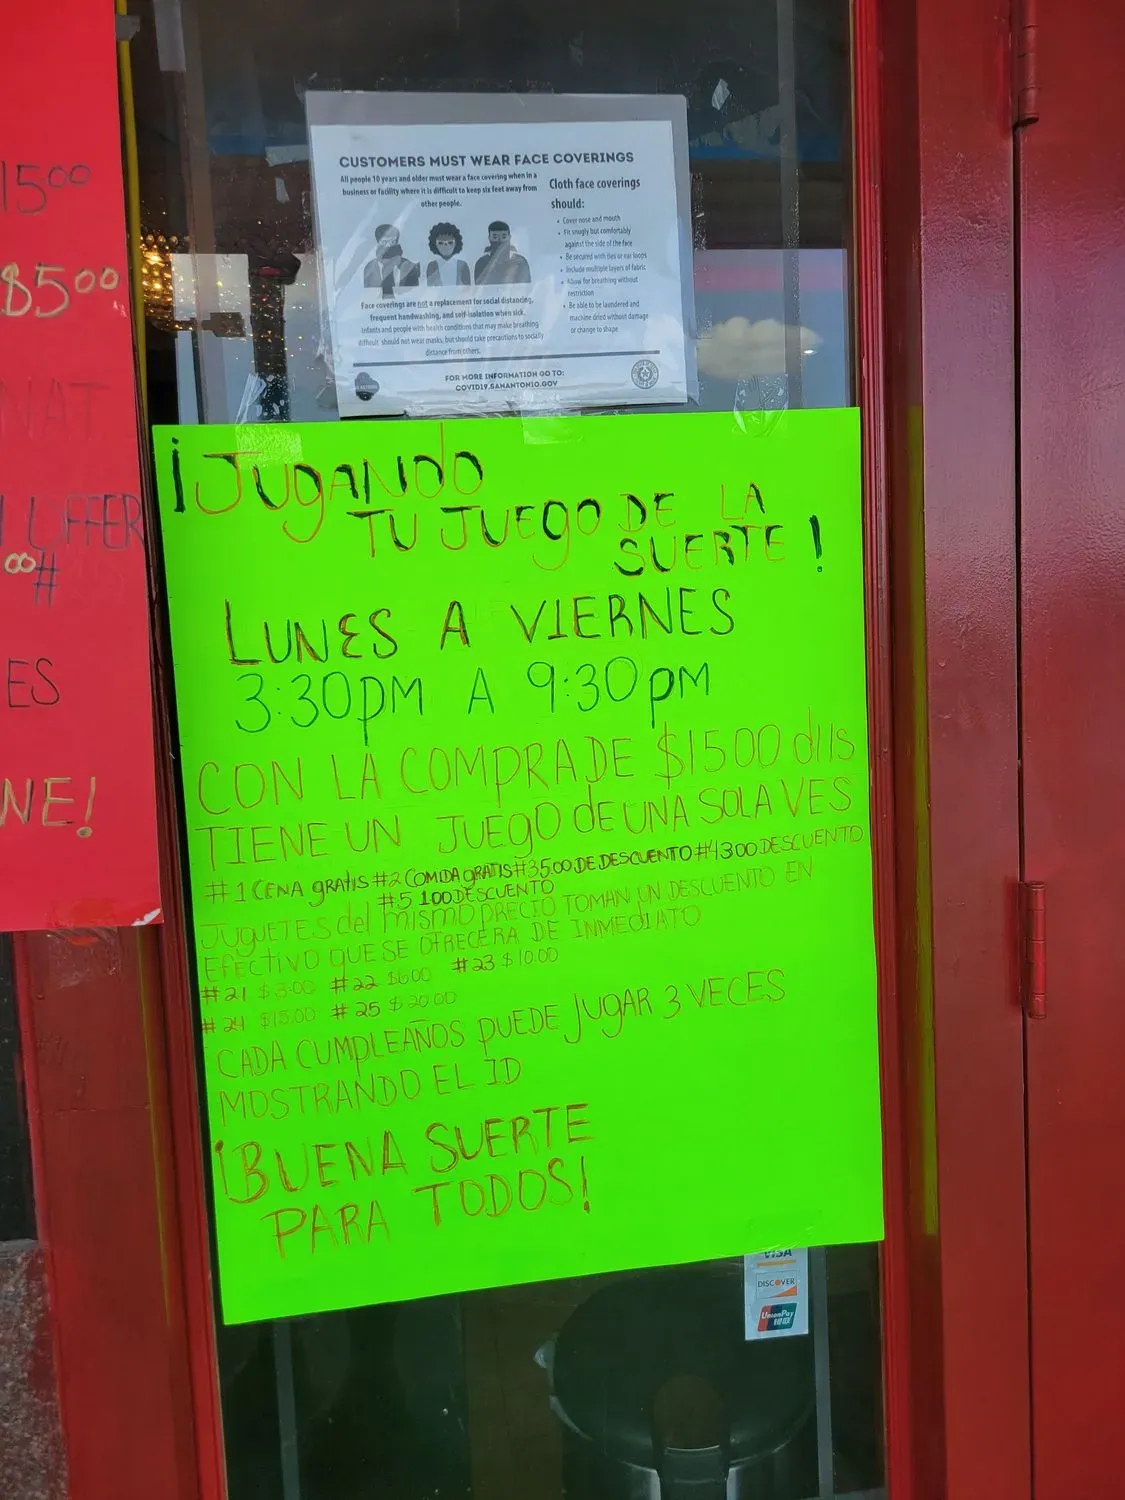 15⁰⁰
$5⁰⁰
NAT
OFFER
⁰⁰#
ES
NE!
CUSTOMERS MUST WEAR FACE COVERINGS
All people 10 years and older must wear a face covering when in a
business or facility where it is difficult to keep six feet away from
other people.
Cloth face coverings
should:
• Cover nose and mouth
• Fit snugly but comfortably
against the side of the face
• Be secured with ties or ear loops
• Include multiple layers of fabric
• Allow for breathing without
restriction
• Be able to be laundered and
machine dried without damage
or change to shape
Face coverings are not a replacement for social distancing,
frequent handwashing, and self-isolation when sick.
Infants and people with health conditions that may make breathing
difficult should not wear masks, but should take precautions to socially
distance from others.
FOR MORE INFORMATION GO TO:
COVID19.SANANTONIO.GOV
¡JUGANDO
TU JUEGO DE LA
SUERTE!
LUNES A VIERNES
3:30PM A 9:30PM
CON LA COMPRA DE $15.00 dlls
TIENE UN JUEGO de UNA SOLA VES
#1 CENA gRATIS #2 COMIDA gRATIS #3 5.00 DE DESCUENTO #4 3.00 DESCUENTO
#5 1.00 DESCUENTO
JUGUETES del mismo PRECIO TOMAN UN DESCUENTO EN
EFECTIVO QUE SE OFRECERA DE INMEDIATO
#21 $3.00 #22 $6.00 #23 $10.00
#24 $15.00 #25 $20.00
CADA CUMPLEAÑOS PUEDE JUGAR 3 VECES
MOSTRANDO EL ID
¡BUENA SUERTE
PARA TODOS!
VISA
DISCOVER
UnionPay
银联